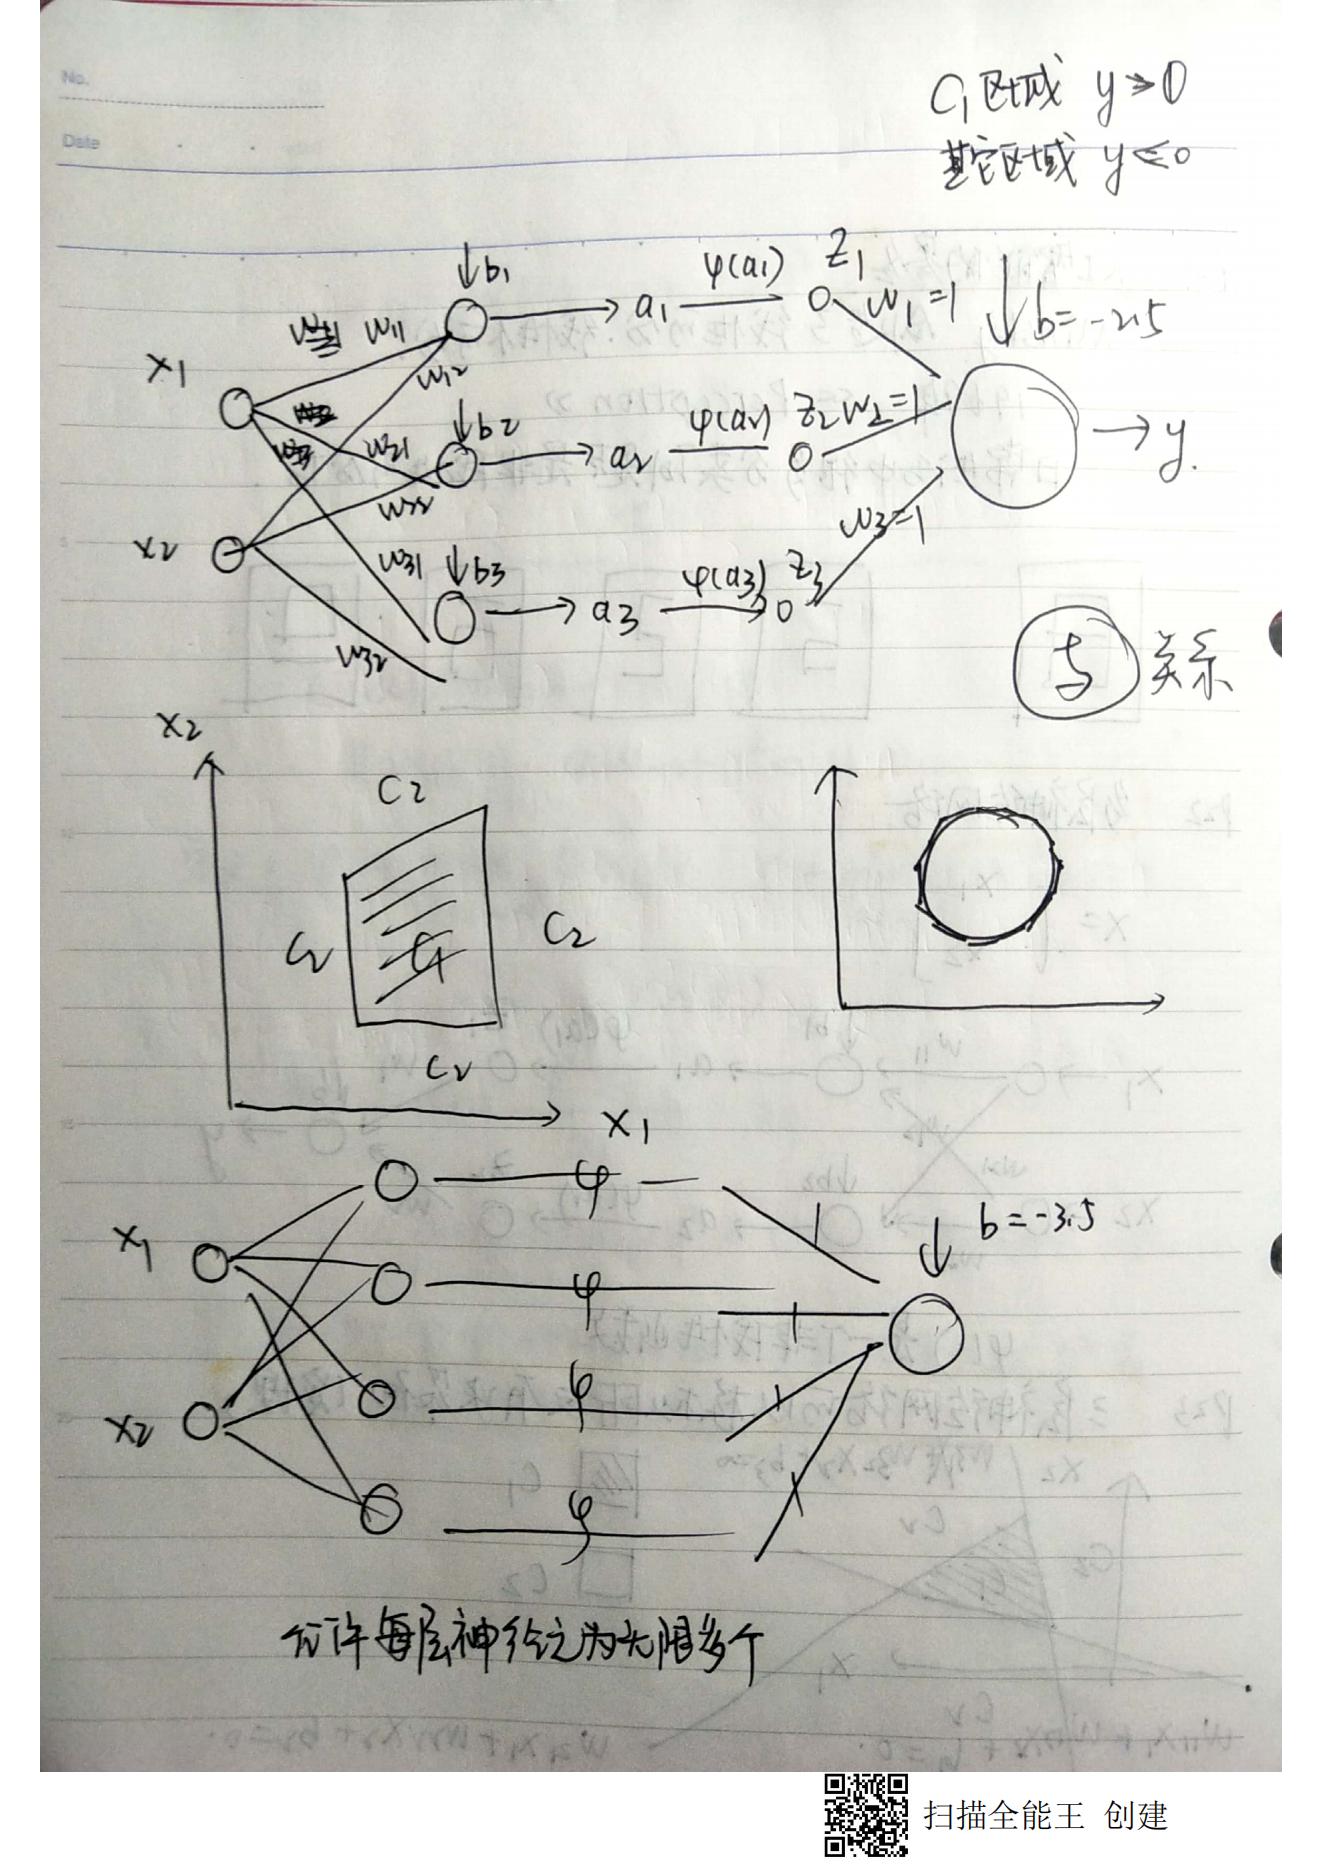 No.
Date
C1区域 y>0
其它区域 y≤0
↓b1 → a1 φ(a1) z1 w1=1 ↓b=-2.5
x1 w11
w12
↓b2 → a2 φ(a2) z2 w2=1 → y.
w21
w22
x2
w31 ↓b3 → a3 φ(a3) z3 w3=1
w32
与 关系
x2
C2
C2 C1 C2
C2
x1
φ
x1 φ 1 ↓ b=-3.5
φ 1
x2 φ 1
φ 1
允许每层神经元为无限多个
扫描全能王 创建